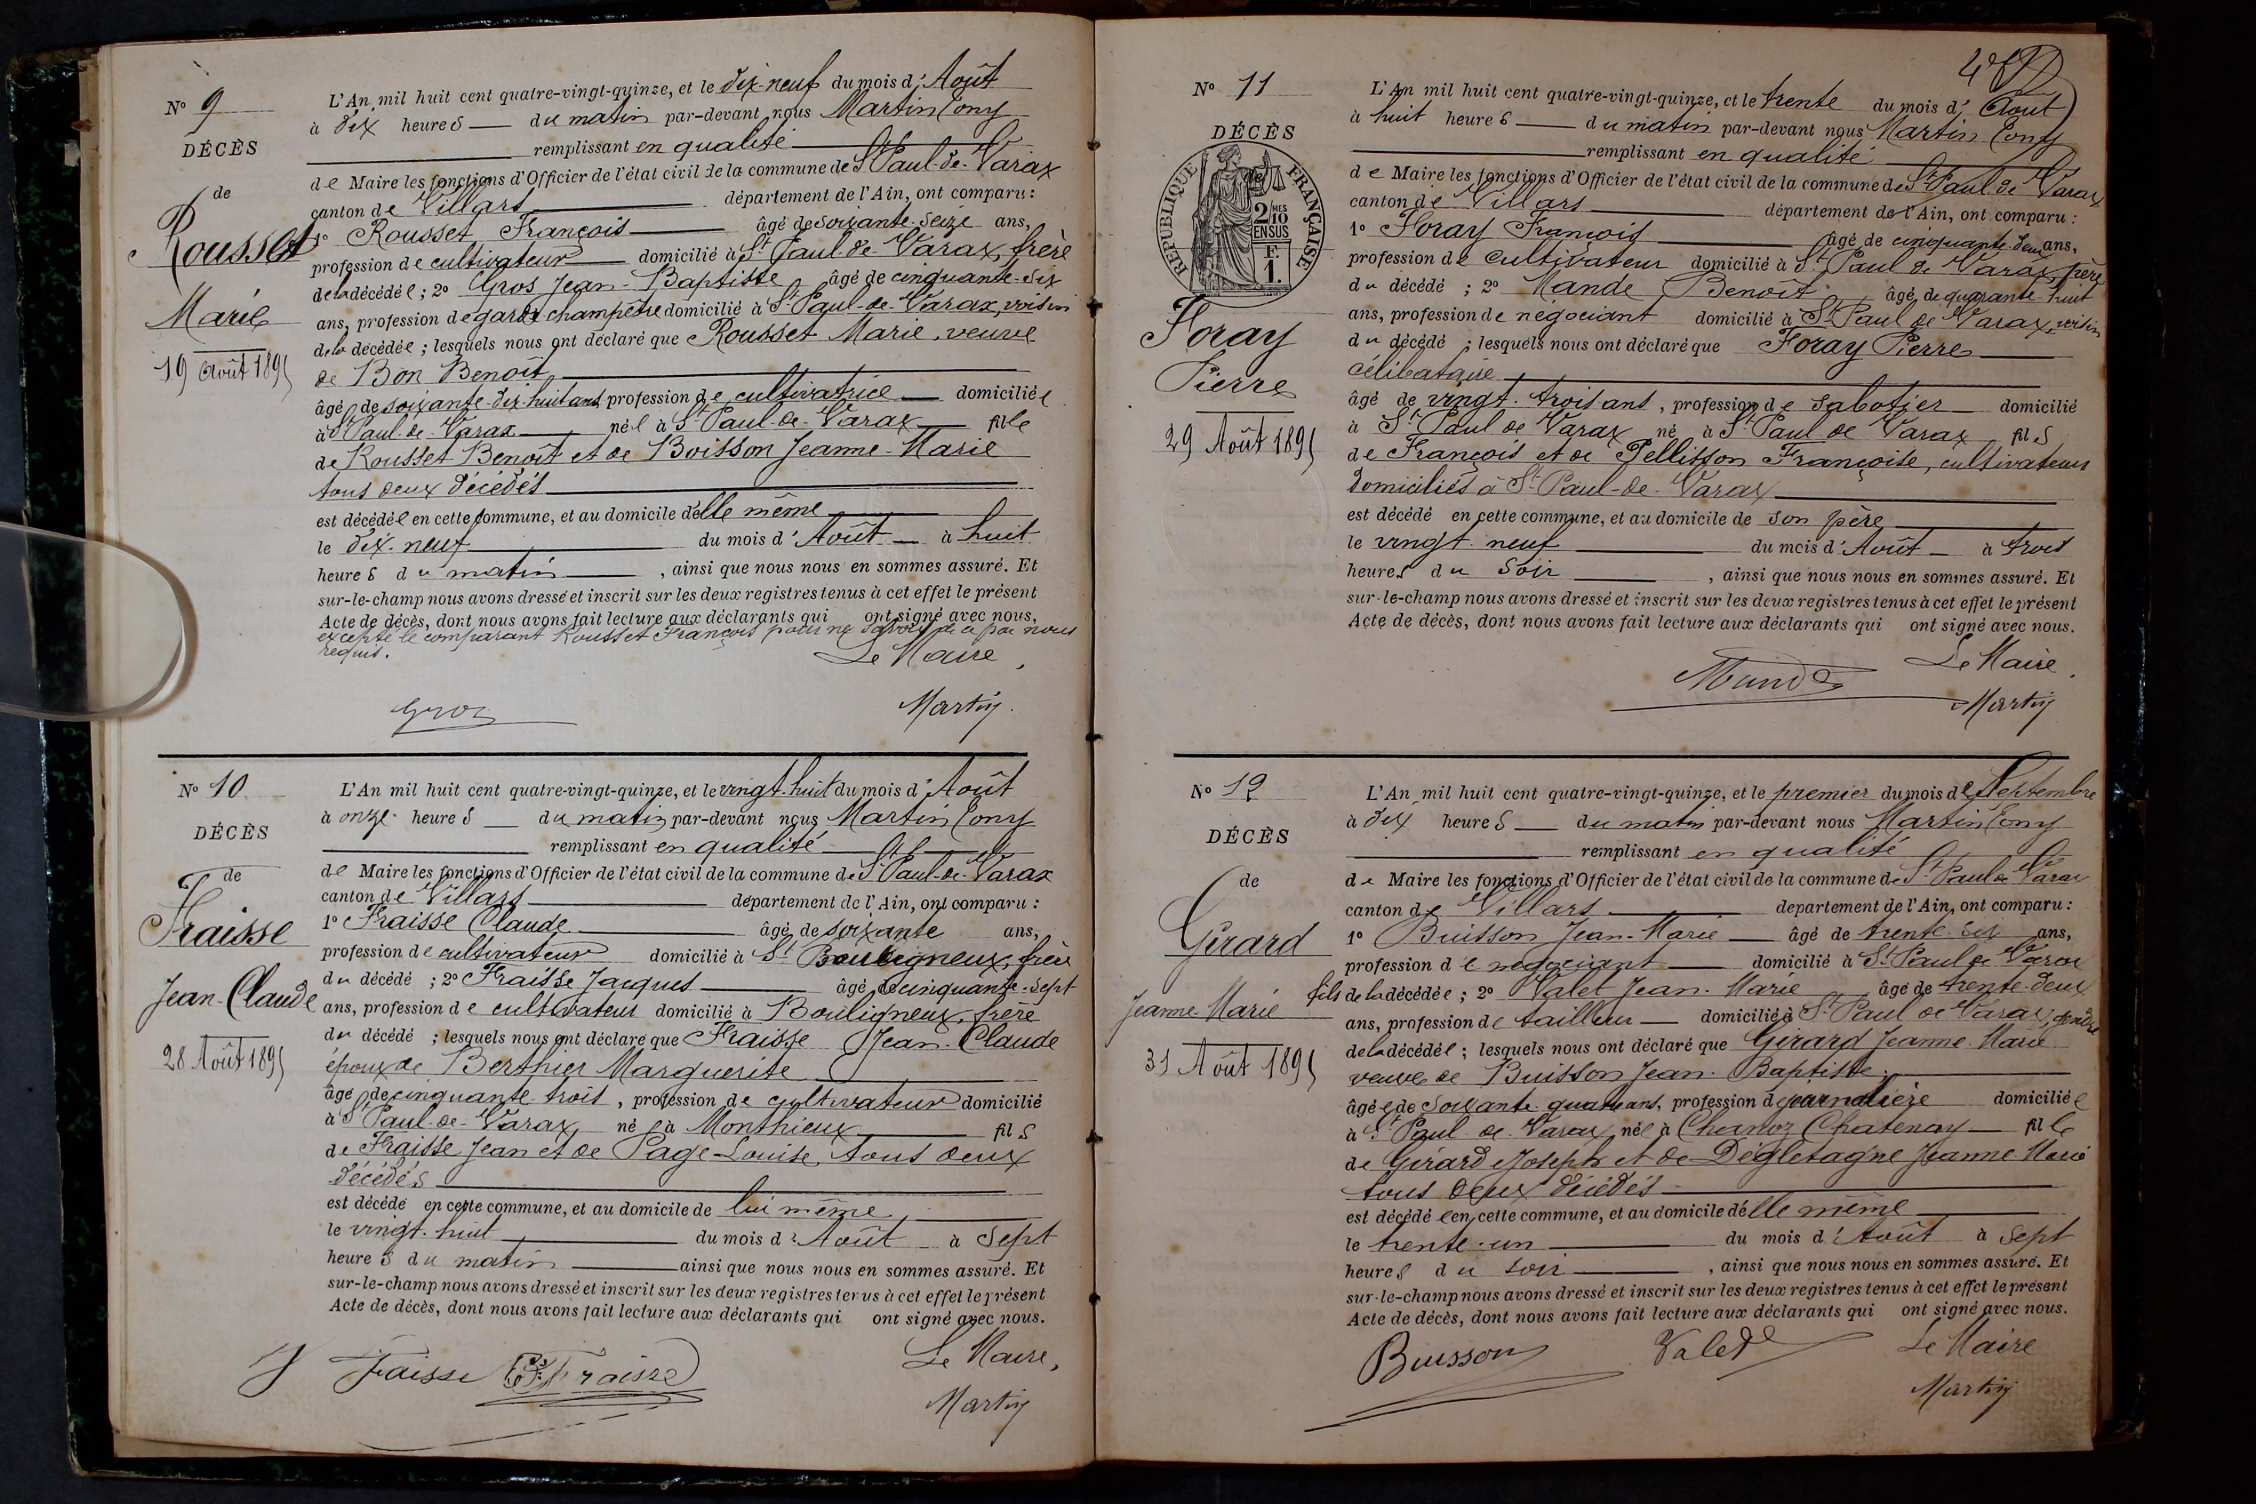 Nº 9
DÉCÈS
de
Rousset
Marie
19 Août 1895
L'An mil huit cent quatre-vingt-quinze, et le dix-neuf du mois d'Août
à dix heures du matin par-devant nous Martin Tony
remplissant en qualité
de Maire les fonctions d'Officier de l'état civil de la commune de St Paul-de-Varax
canton de Villars département de l'Ain, ont comparu :
1º Rousset François âgé de soixante-seize ans,
profession de cultivateur domicilié à St Paul-de-Varax, frère
de la décédée ; 2º Gros Jean-Baptiste âgé de cinquante-six
ans, profession de garde champêtre domicilié à St Paul-de-Varax, voisin
de la décédée ; lesquels nous ont déclaré que Rousset Marie, veuve
de Bon Benoît
âgée de soixante-dix-huit ans, profession de cultivatrice domiciliée
à St Paul-de-Varax née à St Paul-de-Varax fille
de Rousset Benoît et de Boisson Jeanne-Marie
tous deux décédés
est décédée en cette commune, et au domicile d'elle même
le dix-neuf du mois d'Août à huit
heures du matin, ainsi que nous nous en sommes assuré. Et
sur-le-champ nous avons dressé et inscrit sur les deux registres tenus à cet effet le présent
Acte de décès, dont nous avons fait lecture aux déclarants qui ont signé avec nous,
excepté le comparant Rousset François pour ne savoir de ce par nous
requis.
Le Maire,
Gros Martin
Nº 10
DÉCÈS
de
Fraisse
Jean-Claude
28 Août 1895
L'An mil huit cent quatre-vingt-quinze, et le vingt-huit du mois d'Août
à onze heures du matin par-devant nous Martin Tony
remplissant en qualité
de Maire les fonctions d'Officier de l'état civil de la commune de St Paul-de-Varax
canton de Villars département de l'Ain, ont comparu :
1º Fraisse Claude âgé de soixante ans,
profession de cultivateur domicilié à Bouligneux, frère
du décédé ; 2º Fraisse Jacques âgé de cinquante-sept
ans, profession de cultivateur domicilié à Bouligneux, frère
du décédé ; lesquels nous ont déclaré que Fraisse Jean-Claude
époux de Berthier Marguerite
âgé de cinquante-trois, profession de cultivateur domicilié
à St Paul-de-Varax, né à Monthieux fils
de Fraisse Jean et de Page Louise, tous deux
décédés
est décédé en cette commune, et au domicile de lui même
le vingt-huit du mois d'Août à sept
heures du matin ainsi que nous nous en sommes assuré. Et
sur-le-champ nous avons dressé et inscrit sur les deux registres tenus à cet effet le présent
Acte de décès, dont nous avons fait lecture aux déclarants qui ont signé avec nous.
Le Maire,
Faisse Fraisse
Martin
Nº 11
DÉCÈS
de
RÉPUBLIQUE FRANÇAISE
2/10 MES
EN SUS
F.
1.
Foray
Pierre
29 Août 1895
L'An mil huit cent quatre-vingt-quinze, et le trente du mois d'Août
à huit heures du matin par-devant nous Martin Tony
remplissant en qualité
de Maire les fonctions d'Officier de l'état civil de la commune de St Paul de Varax
canton de Villars département de l'Ain, ont comparu :
1º Foray François âgé de cinquante-deux ans,
profession de cultivateur domicilié à St Paul de Varax, père
du décédé ; 2º Mande Benoît âgé de quarante-huit
ans, profession de négociant domicilié à St Paul de Varax, voisin
du décédé ; lesquels nous ont déclaré que Foray Pierre
célibataire
âgé de vingt-trois ans, profession de sabotier domicilié
à St Paul de Varax né à St Paul de Varax fils
de François et de Pellisson Françoise, cultivateurs
domiciliés à St Paul-de-Varax
est décédé en cette commune, et au domicile de son père
le vingt-neuf du mois d'Août à trois
heures du soir, ainsi que nous nous en sommes assuré. Et
sur-le-champ nous avons dressé et inscrit sur les deux registres tenus à cet effet le présent
Acte de décès, dont nous avons fait lecture aux déclarants qui ont signé avec nous.
Le Maire,
Mande
Martin
Nº 12
DÉCÈS
de
Gérard
Jeanne Marie
31 Août 1895
L'An mil huit cent quatre-vingt-quinze, et le premier du mois de Septembre
à dix heures du matin par-devant nous Martin Tony
remplissant en qualité
de Maire les fonctions d'Officier de l'état civil de la commune de St Paul de Varax
canton de Villars département de l'Ain, ont comparu :
1º Buisson Jean-Marie âgé de trente-six ans,
profession de négociant domicilié à St Paul de Varax
fils de la décédée ; 2º Valet Jean-Marie âgé de trente-deux
ans, profession de tailleur domicilié à St Paul de Varax, gendre
de la décédée ; lesquels nous ont déclaré que Gérard Jeanne Marie
veuve de Buisson Jean-Baptiste
âgée de soixante-quatre ans, profession de journalière domiciliée
à St Paul de Varax, née à Chanoz-Chatenay fille
de Gérard Joseph et de Dégletagne Jeanne Marie
tous deux décédés
est décédée en cette commune, et au domicile d'elle même
le trente-un du mois d'Août à sept
heures du soir, ainsi que nous nous en sommes assuré. Et
sur-le-champ nous avons dressé et inscrit sur les deux registres tenus à cet effet le présent
Acte de décès, dont nous avons fait lecture aux déclarants qui ont signé avec nous.
Buisson Valet Le Maire
Martin